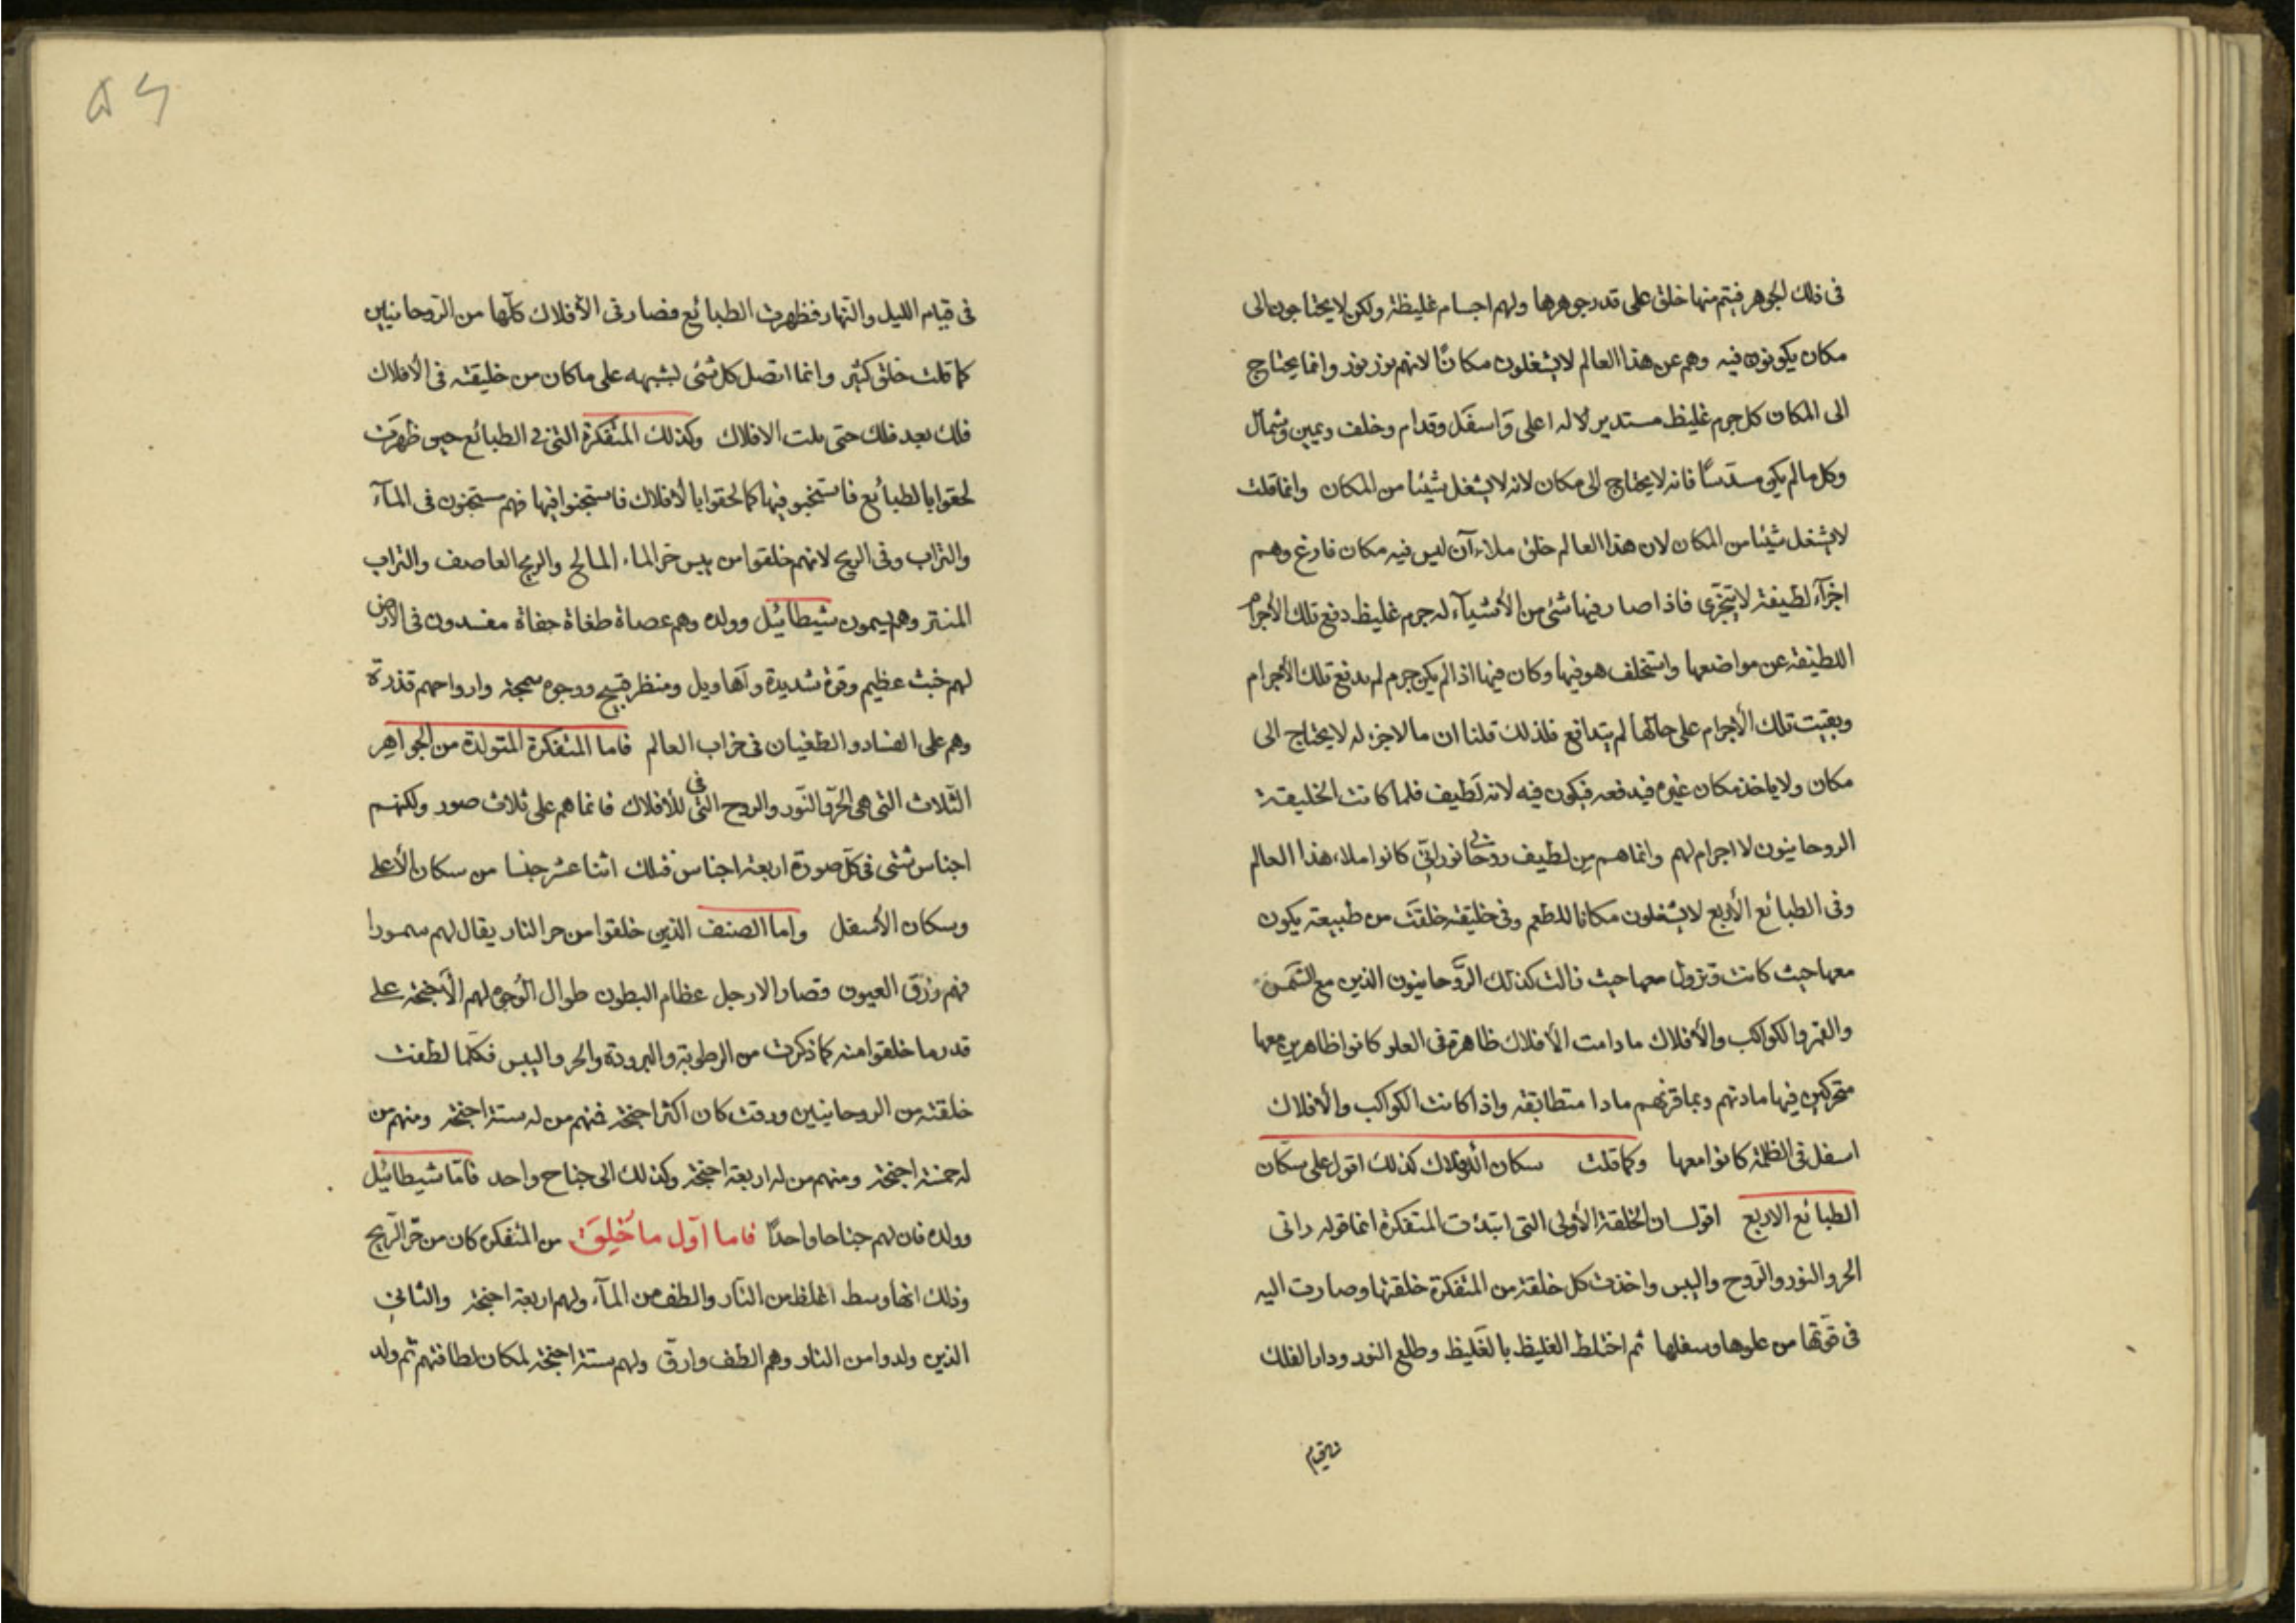 فى ذلك الجوهر فيتم منها خلق على قدر جوهرها ولهم اجسام غليظة ولكن لا يحتاجون الى
مكان يكونون فيه وهم عن هذا العالم لا يشغلون مكانًا لانهم نور نور وانما يحتاج
الى المكان كل جرم غليظ مستدير لا له اعلى وَاسفَل وقدام وخلف ويمين وشمال
وكل ما لم يكن مسدّسًا فانه لا يحتاج الى مكان لانه لا يشغل شيئا من المكان وانما قلت
لا يشغل شيئا من المكان لان هذا العالم خلق ملاءآن ليس فيه مكان فارغ وهم
اجزآء لطيفة لا تتجزى فاذا صار فيها شئ من الأشياء له جرم غليظ دفع تلك الأجرام
اللطيفة عن مواضعها واستخلف هو فيها وكان فيها اذا لم يكن جرم لم يدفع تلك الأجرام
وبقيت تلك الأجرام على حالها لم يتدافع فلذلك قلنا ان ما لا جزء له لا يحتاج الى
مكان ولا ياخذ مكان غيره فيدفعه فيكون فيه لانه لَطيف فلما كانت الخليقة
الروحانيون لا اجرام لهم وانما هم مِن لطيف روحانى نورانىّ كانوا ملاء هذا العالم
وفى الطبائع الأربع لا يشغلون مكانا للطعم وفى خليقة خلقَت من طبيعة يكون
معها حيث كانت وتزول معها حيث زالت كذلك الرَّوحانيون الذين مع الشَّمس
والقمر والكواكب والأفلاك ما دامت الأفلاك ظاهرة فى العلو كانوا ظاهرين معها
متحركين فيها مادتهم وبما قرنهم مادا متطابقة واذا كانت الكواكب والأفلاك
اسفل فى الظلمة كانوا معها وكما قلت سكان الأفلاك كذلك اقول على سكّان
الطبائع الاربع اقول ان الخلقة الأولى التى ابتدئت المتفكرة انما قوله راتى
الحر والنور والرّوح واليبس واخذت كل خلقة من المتفكرة خلقتها وصارت اليه
فى قوّتها من علوها وسفلها ثم اختلط الغليظ بالغَليظ وطلع النور ودار الفلك
فى قيام الليل والنّهار فظهرت الطبائع فصار فى الأفلاك كلّها من الرّوحانيين
كما قلت خلق كثير وانما اتصل كل شئ بشبهه على ما كان من خليقته فى الأفلاك
فلك بعد فلك حتى ملت الافلاك وكذلك المتفكرة التى فى الطبائع حين ظهرَت
لحقوا بالطبائع فاستجنو فيها كما لحقوا بالأفلاك فاستجنوا فيها فهم مستجنون فى المآء
والتراب وفى الريح لانهم خلقوا من يبس حر الماء المالح والريح العاصف والتراب
المنتر وهم يسمون شيطائيل وولده وهم عصاة طغاة جفاة مفسدون فى الارض
لهم خبث عظيم وقوة شديدة واَهاويل ومنظر قبيح ووجوه سمجة وارواحهم قذرة
وهم على الفساد والطغيان فى خراب العالم فاما المتفكرة المتولدة من الجواهر
الثّلاث التى هى الحرّ والنّور والروح التى فى للأفلاك فانما هم على ثلاث صور ولكنهم
اجناس شتى فى كلّ صورة اربعة اجناس فتلك اثنا عشر جنسا من سكان الأعلى
وسكان الأسفل واما الصنف الذين خلقوا من حر النار يقال لهم سمورا
فهم زرَق العيون قصار الارجل عظام البطون طوال الوُجوه لهم الأَجنحة على
قدر ما خلقوا منه كما ذكرت من الرطوبة والبرودة والحر واليبس فكلّما لطفت
خلقة من الروحانيين ورقت كان اكثر اجنحة فمنهم من له ستة اجنحة ومنهم من
له خمسة اجنحة ومنهم من له اربعة اجنحة وكذلك الى جناح واحد فامّا شيطائيل
وولده فان لهم جناحا واحدًا فاما اوّل ما خُلِقَ من المتفكره كان من حرّ الرّيح
وذلك انها وسط اغلظ من النّار والطف من المآء ولهم اربعة اجنحة والثانى
الذين ولدوا من النار وهم الطف وارق ولهم ستة اجنحة لمكان لطافتهم ثم ولد